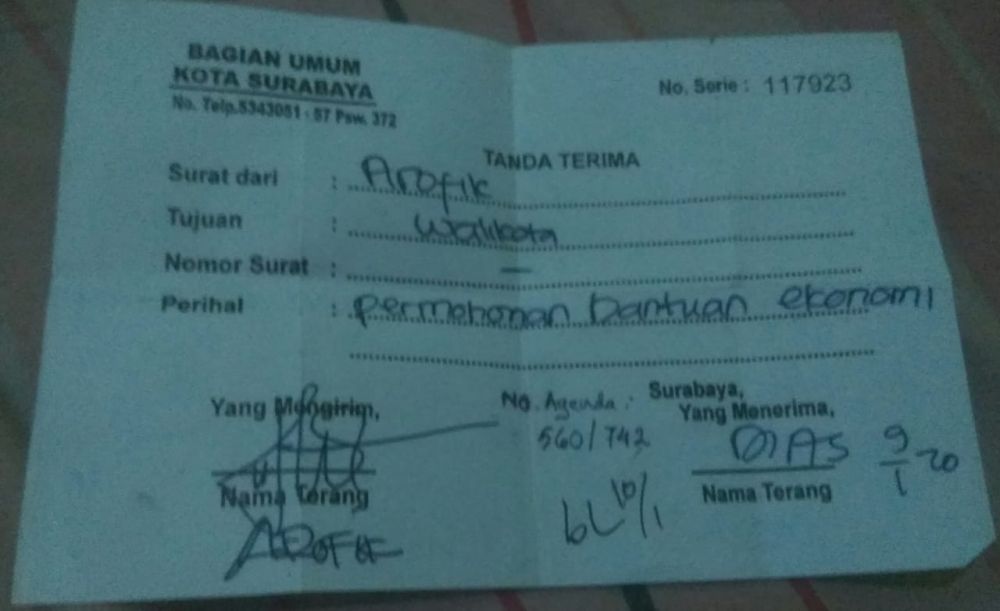 BAGIAN UMUM
KOTA SURABAYA
No. Telp.5343051 - 57 Psw. 372
No. Serie : 117923
TANDA TERIMA
Surat dari : Arofik
Tujuan : Walikota
Nomor Surat : —
Perihal : permohonan bantuan ekonomi
Surabaya,
Yang Mengirim,
No. Agenda :
560/742
Yang Menerima,
DIAS
9/1 20
Nama Terang
Nama Terang
10/1
AROFIK